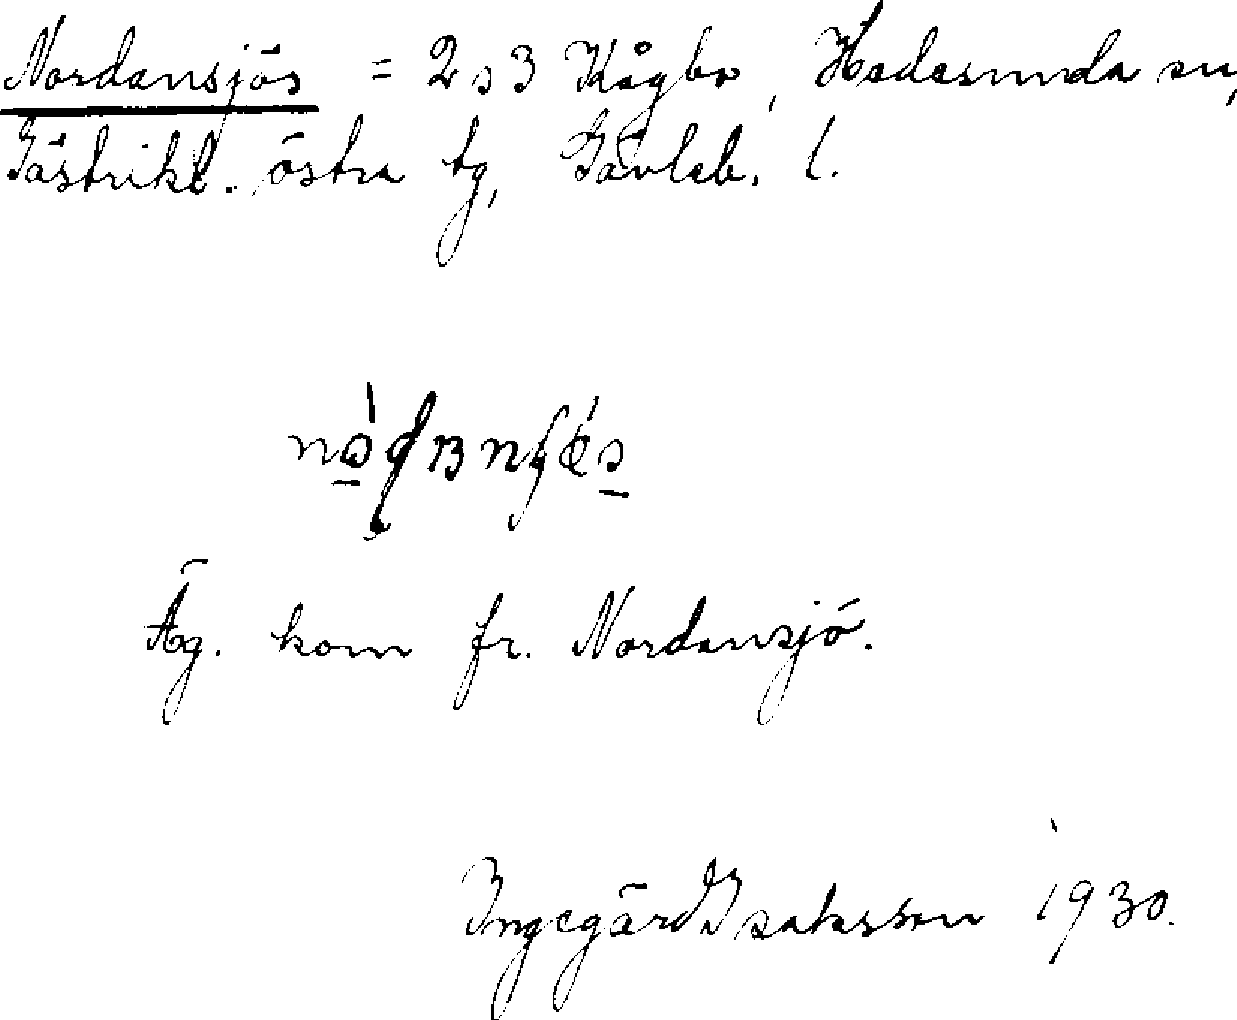 Nordansjös = 2 o 3 Kågbo, Hedesunda sn,
Gästrikl. östra tg, Gävleb. l.
Äg. kom fr. Nordansjö.
Ingegärd Isaksson 1930.